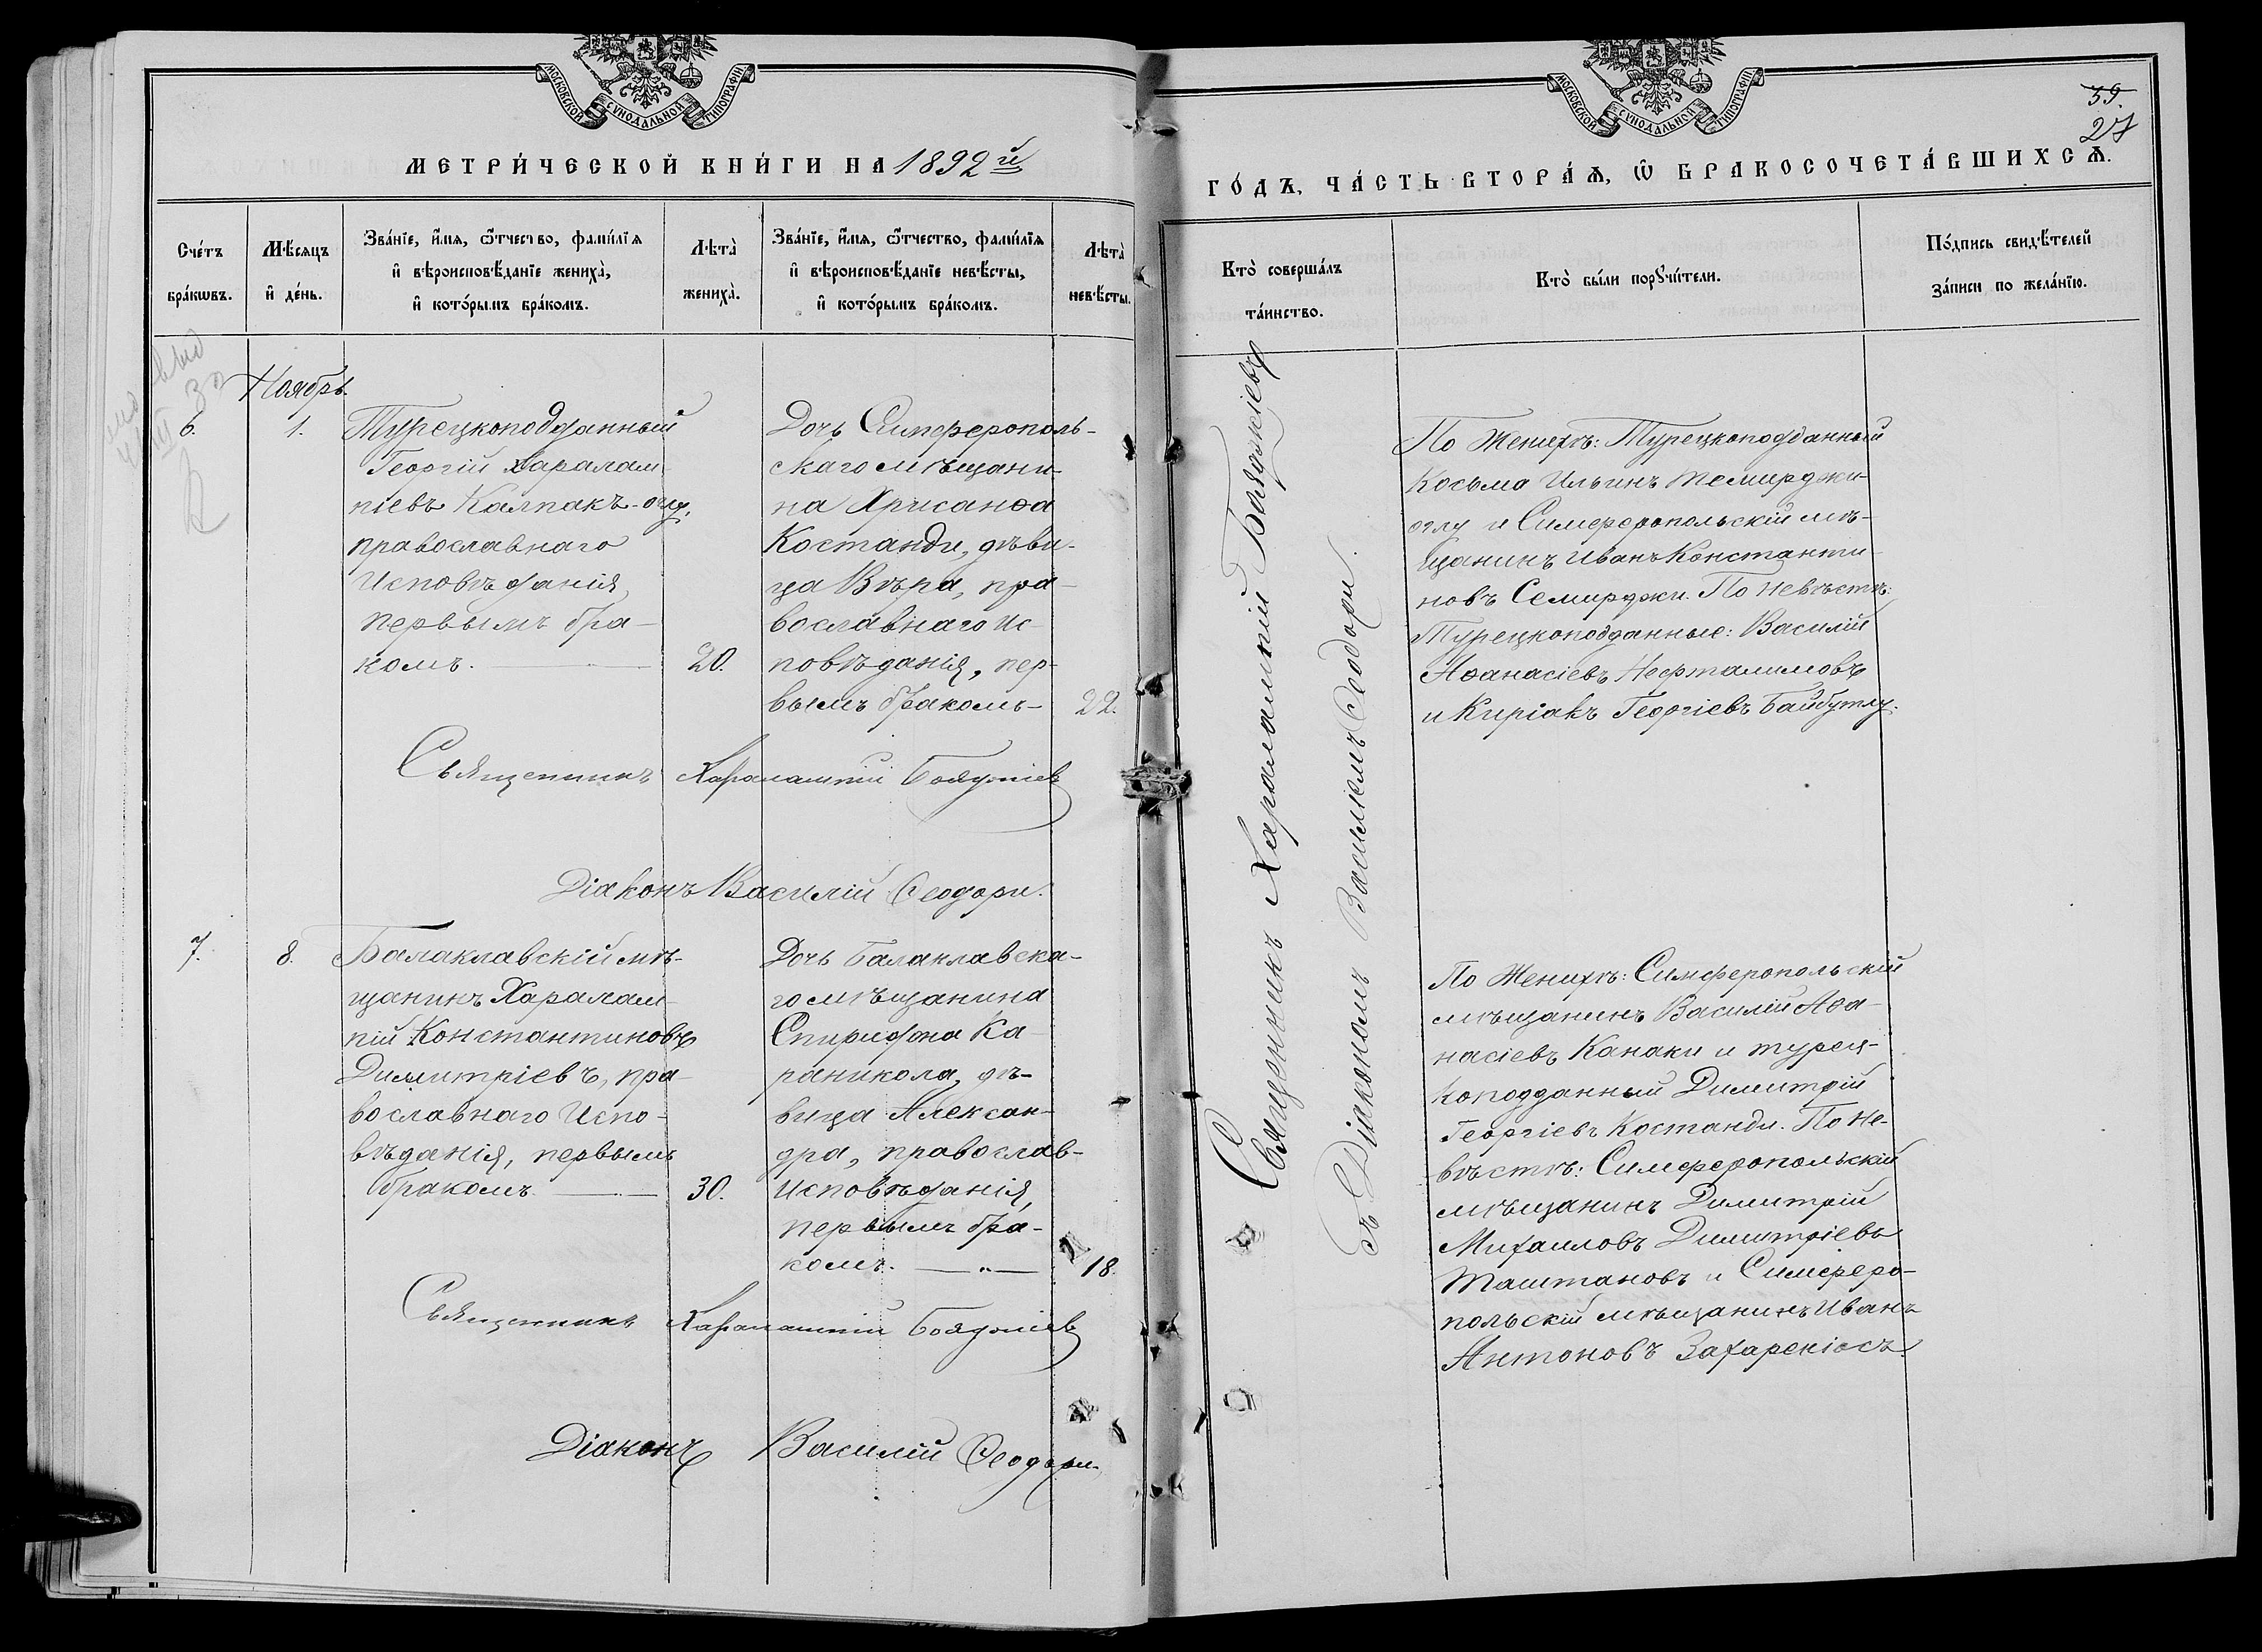 МОСКОВСКОЙ СѴНОДАЛЬНОЙ ТИПОГРАФІИ
МЕТРИ́ЧЕСКОЙ КНИ́ГИ НА 1892 й
Сче́тъ бра́кѡвъ.
Мѣ́сяцъ и҆ де́нь.
Зва́нїе, и҆́мѧ, ѻ҆́тчество, фамилїѧ
и҆ вѣроисповѣ́данїе жениха̀,
и҆ кото́рымъ бра́комъ.
Лѣта̀ жениха̀.
Зва́нїе, и҆́мѧ, ѻ҆́тчество, фамилїѧ
и҆ вѣроисповѣ́данїе невѣ́сты,
и҆ кото́рымъ бра́комъ.
Лѣта̀ невѣ́сты.
Ноябрь.
6.
1.
Турецкоподданный
Георгій Харалам-
піевъ Калпакъ-оглу,
православнаго
Исповѣданія,
первымъ бра-
комъ.
20.
Дочь Симферополь-
скаго мѣщани-
на Хрисанѳа
Костанди, дѣви-
ца Вѣра, пра-
вославнаго ис-
повѣданія, пер-
вымъ бракомъ-
22.
Священникъ Харалампій Бояджіевъ
Діаконъ Василій Ѳеодори.
7.
8.
Балаклавскій мѣ-
щанинъ Харалам-
пій Константиновъ
Димитріевъ, пра-
вославнаго Испо-
вѣданія, первымъ
бракомъ.
30.
Дочь Балаклавска-
го мѣщанина
Спиридона Ка-
раникола, дѣ-
вица Алексан-
дра, православ-
Исповѣданія,
первымъ бра-
комъ.
18.
Священникъ Харалампій Бояджіевъ
Діаконъ Василій Ѳеодори.
МОСКОВСКОЙ СѴНОДАЛЬНОЙ ТИПОГРАФІИ
39.
27
ГО́ДЪ, ЧА́СТЬ ВТОРА́Ѧ, Ѡ҆ БРАКОСОЧЕТА́ВШИХСѦ.
Кто̀ соверша́лъ
та́инство.
Кто̀ бы́ли порꙋчи́тели.
По́дпись свидѣ́телей
за́писи по жела́нїю.
Священникъ Харалампій Бояджіевъ
съ Діакономъ Василіемъ Ѳеодори.
По Женихѣ: Турецкоподданный
Косьма Ильинъ Темирджи-
оглу и Симферопольскій мѣ-
щанинъ Иванъ Константи-
новъ Семирджи. По Невѣстѣ:
Турецкоподданные: Василій
Аѳанасіевъ Нефталимовъ
и Киріакъ Георгіевъ Байбутлу.
По Женихѣ: Симферопольскій
мѣщанинъ Василій Аѳа-
насіевъ Канаки и турец-
коподданный Димитрій
Георгіевъ Костанди. По Не-
вѣстѣ: Симферопольскій
мѣщанинъ Димитрій
Михаиловъ Димитріевъ
Таштановъ и Симферо-
польскій мѣщанинъ Иванъ
Антоновъ Захаревіосъ.